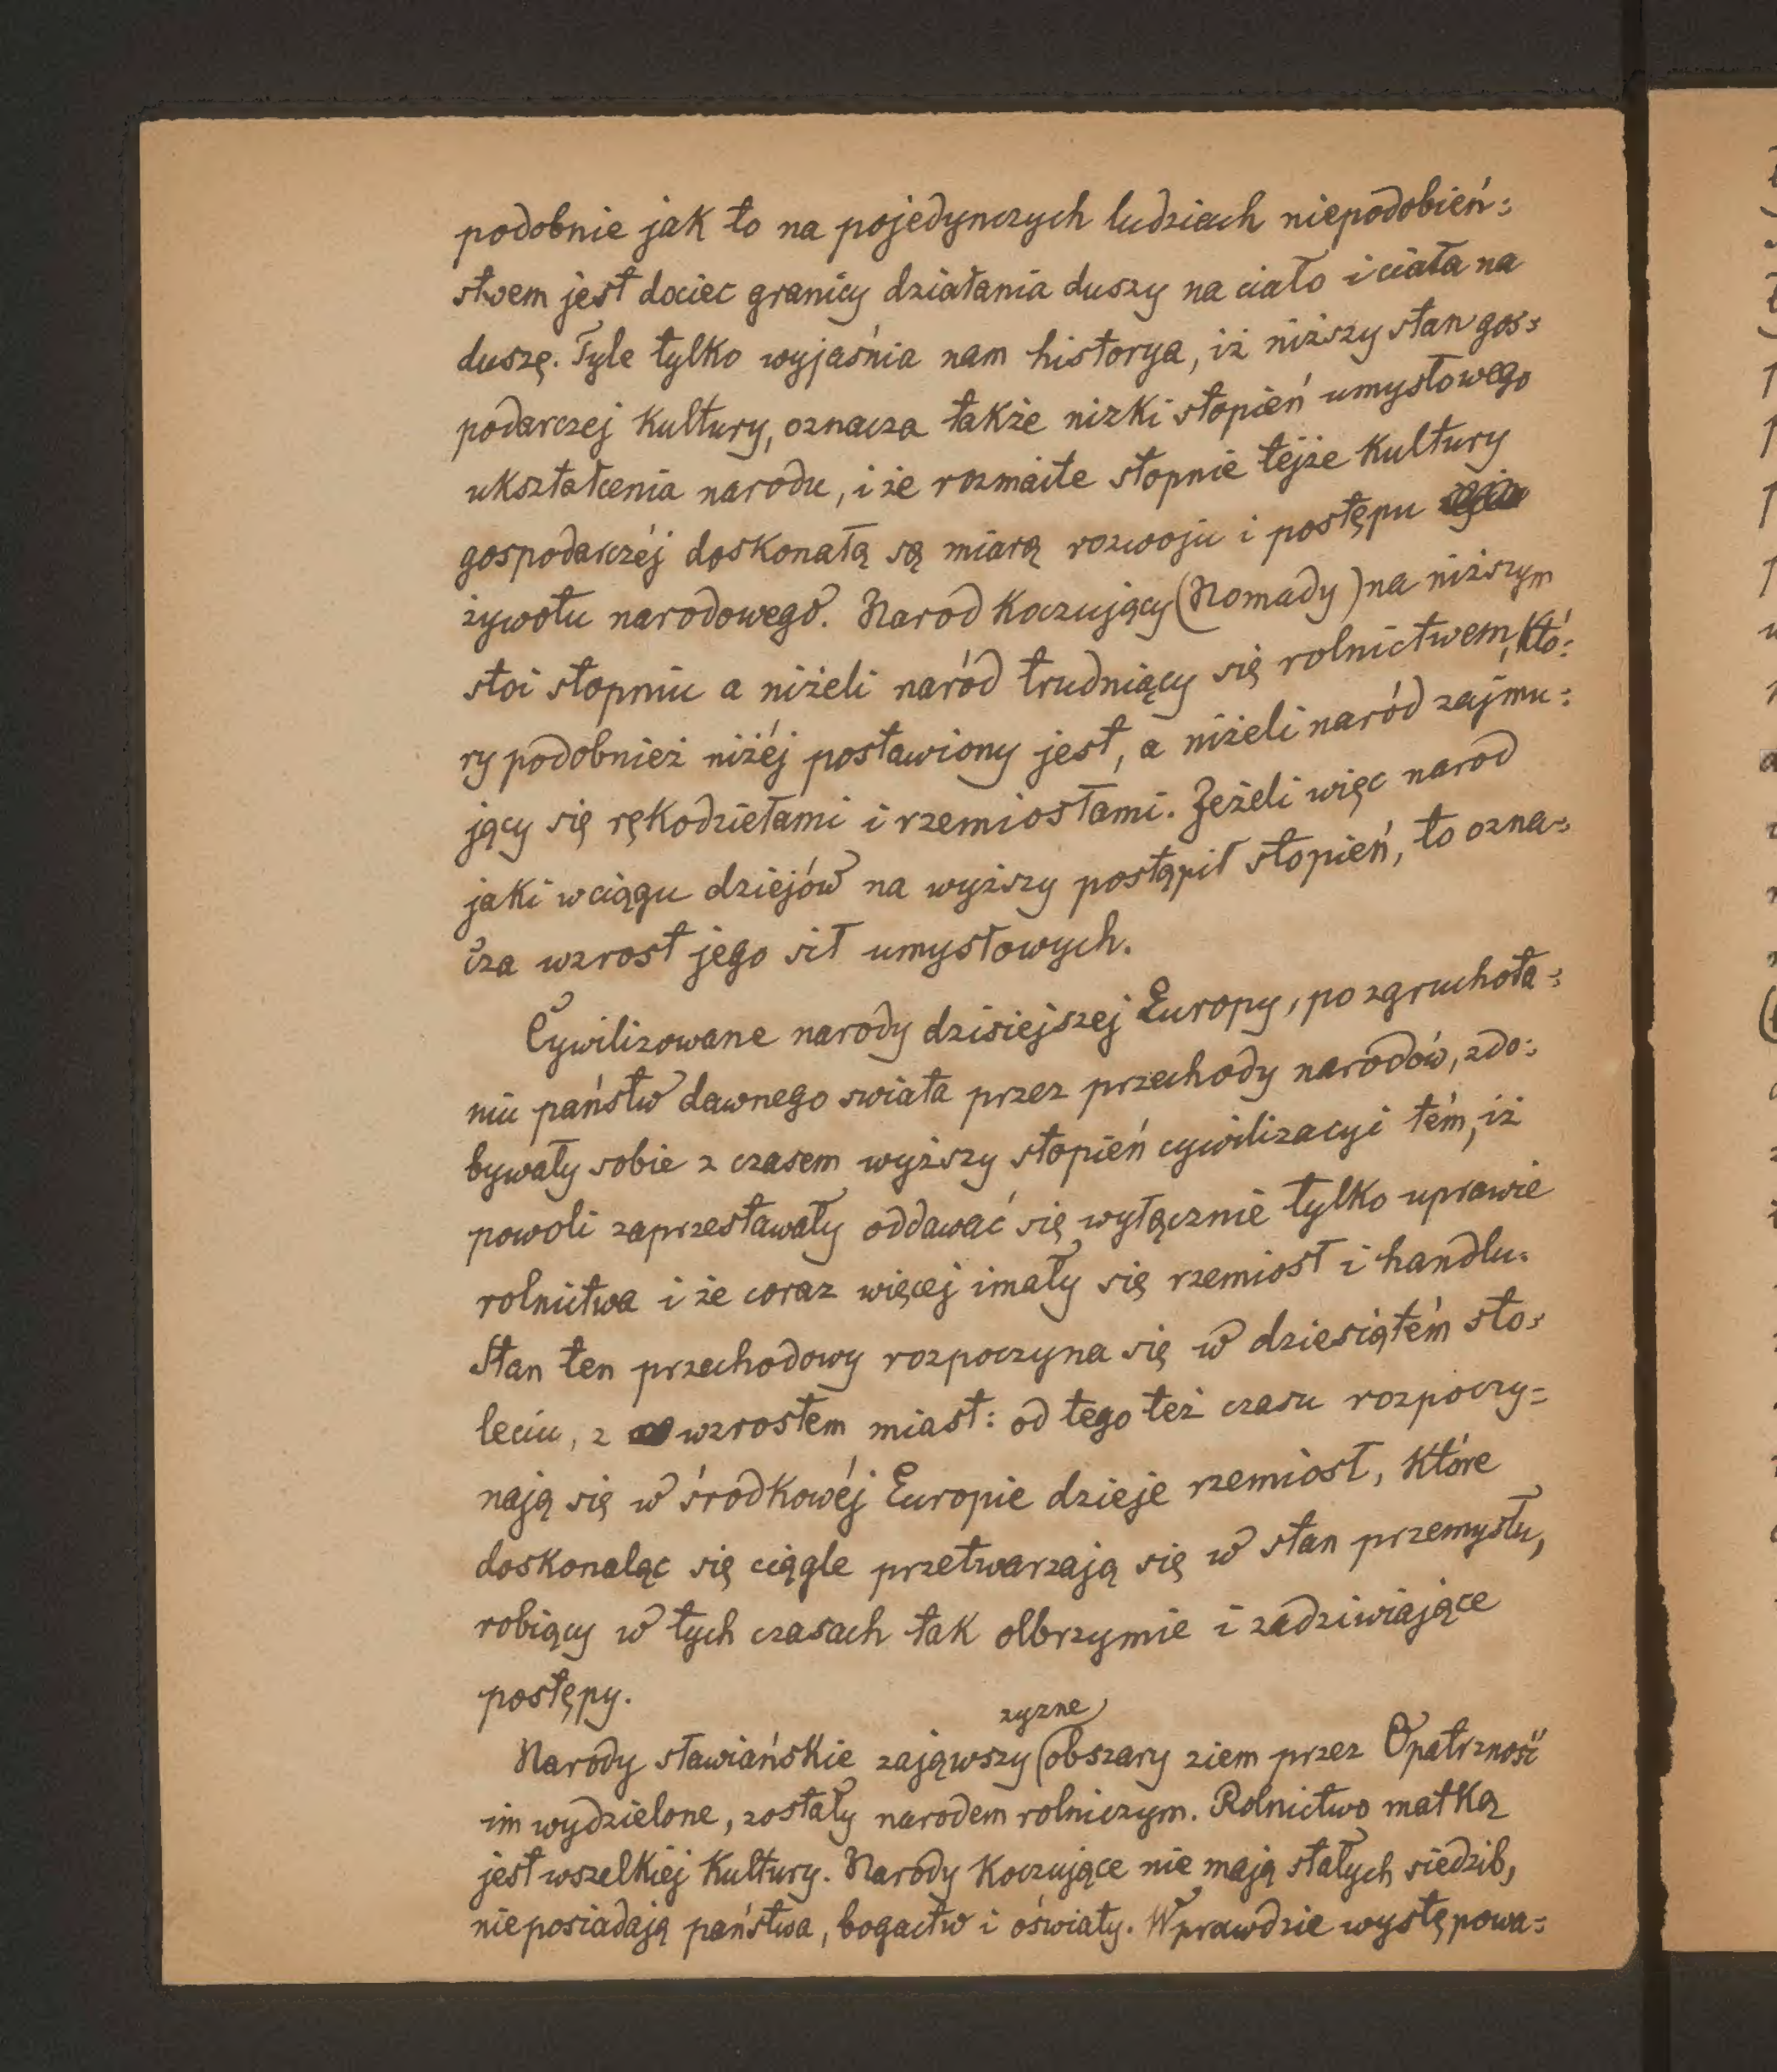 podobnie jak to na pojedynczych ludziach niepodobień:
stwem jest dociec granicy działania duszy na ciało i ciała na
duszę. Tyle tylko wyjaśnia nam historya, iż niższy stan gos:
podarczej kultury, oznacza także nizki stopień umysłowego
ukształcenia narodu, i że rozmaite stopnie tejże kultury
gospodarczéj doskonałą są miarą rozwoju i postępu
żywotu narodowego. Naród koczujący (Nomady) na niższym
stoi stopniu a niżeli naród trudniący się rolnictwem, któ:
ry podobnież niżéj postawiony jest, a niżeli naród zajmu:
jący się rękodziełami i rzemiosłami. Jeżeli więc naród
jaki w ciągu dziejów na wyższy postąpił stopień, to ozna:
cza wzrost jego sił umysłowych.
Cywilizowane narody dzisiejszej Europy, po zgruchota:
niu państw dawnego swiata przez przechody narodów, zdo:
bywały sobie z czasem wyższy stopień cywilizacyi tém, iż
powoli zaprzestawały oddawać się wyłącznie tylko uprawie
rolnictwa i że coraz więcej imały się rzemiosł i handlu.
Stan ten przechodowy rozpoczyna się w dziesiątém sto:
leciu, z wzrostem miast: od tego też czasu rozpoczy=
nają się w środkowéj Europie dzieje rzemiosł, które
doskonaląc się ciągle przetwarzają się w stan przemysłu,
robiący w tych czasach tak olbrzymie i zadziwiające
postępy.
zyzne
Narody sławiańskie zająwszy obszary ziem przez Opatrzność
im wydzielone, zostały narodem rolniczym. Rolnictwo matką
jest wszelkiej kultury. Narody koczujące nie mają stałych siedzib,
nie posiadają państwa, bogactw i oświaty. Wprawdzie występowa: